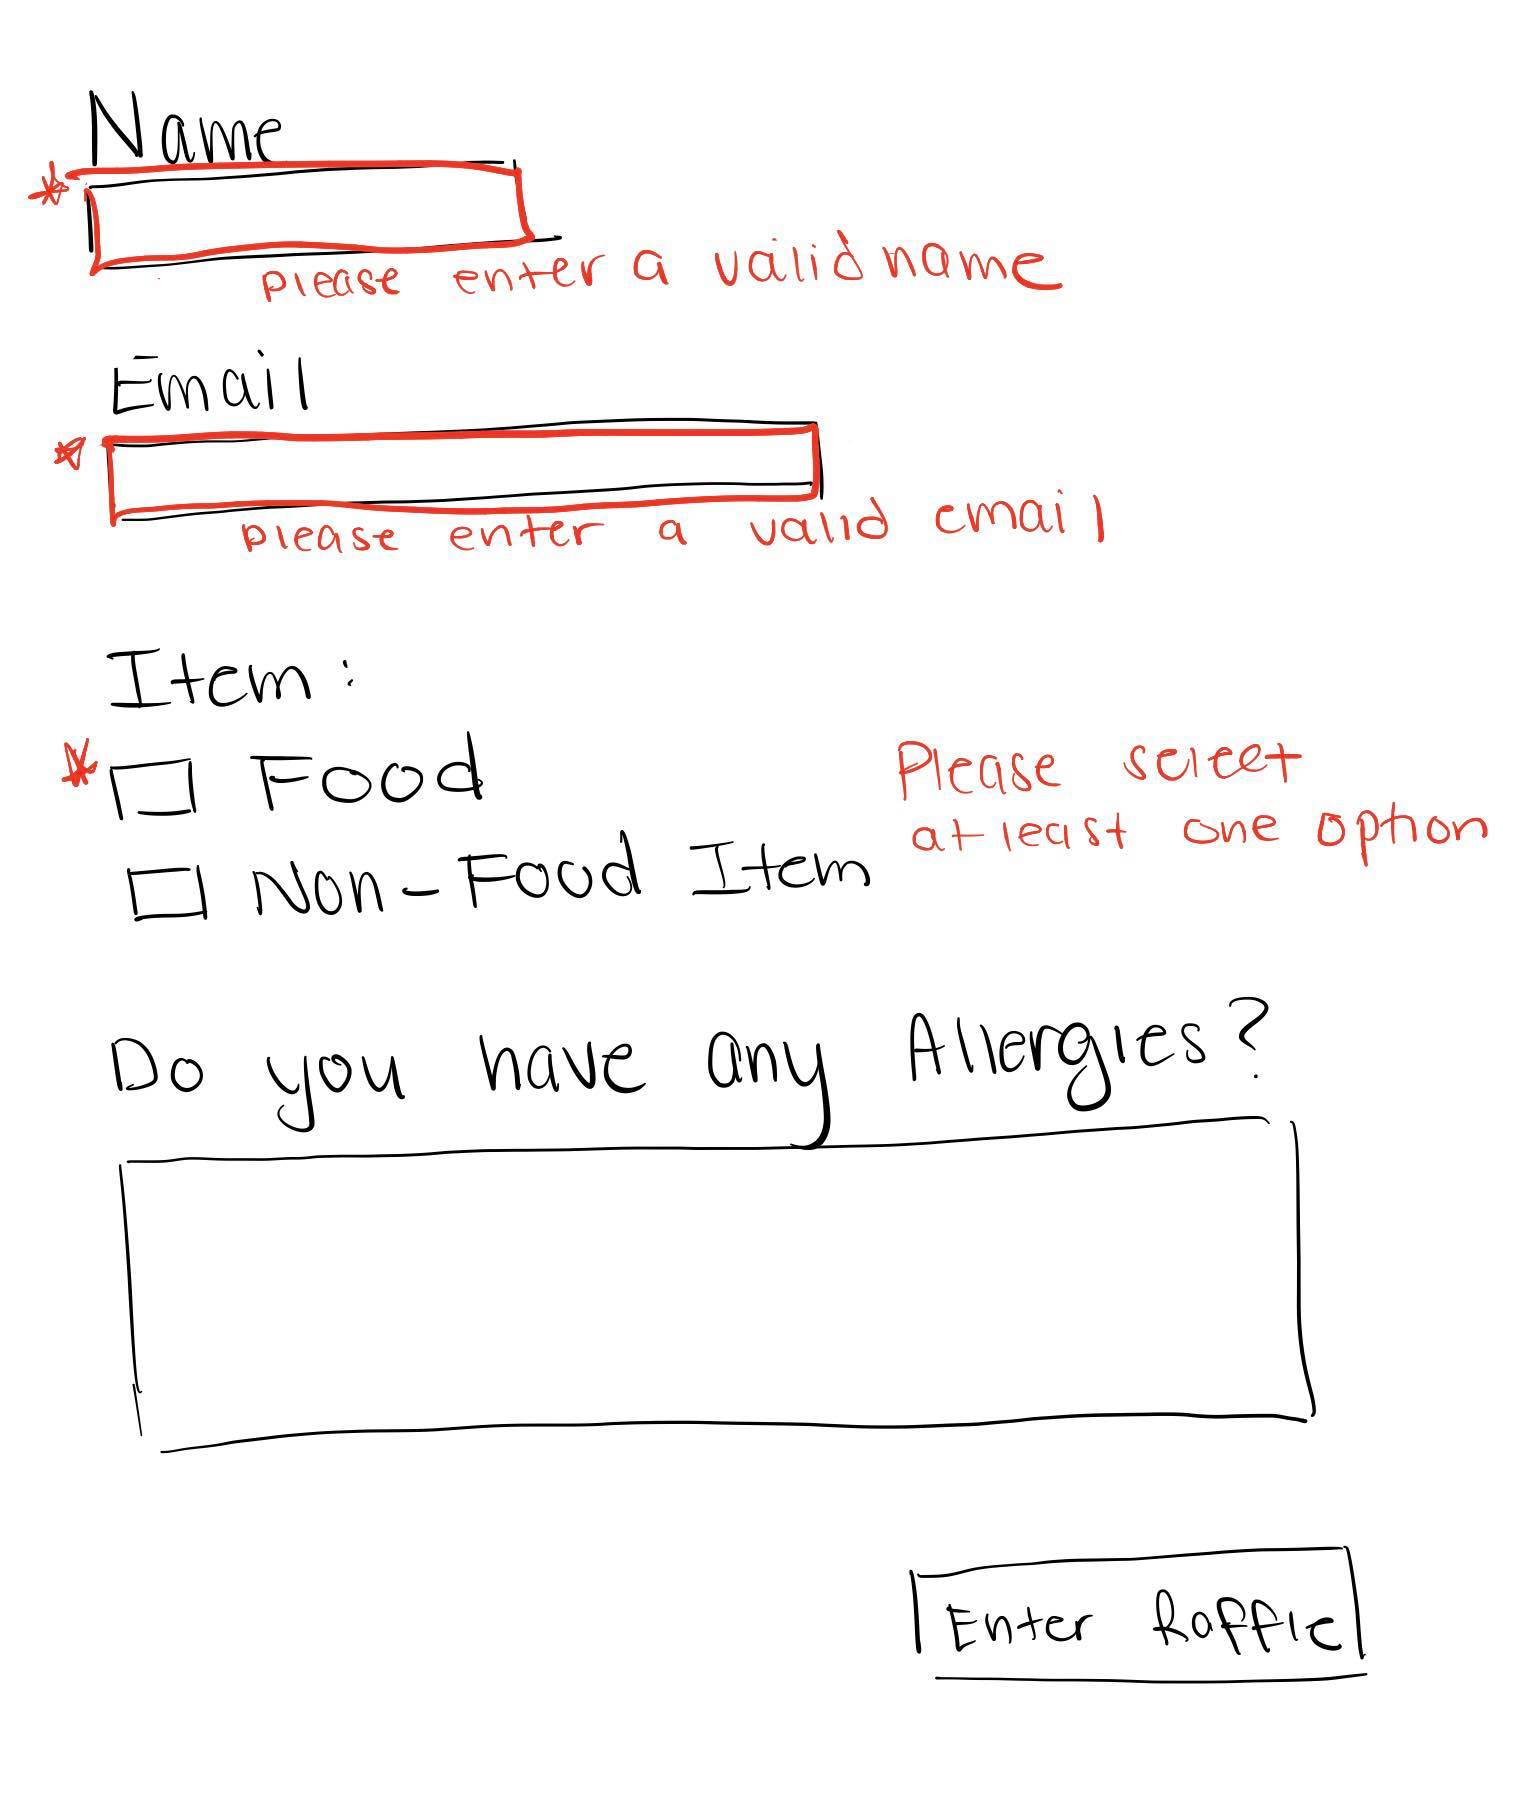 Name
* please enter a valid name
Email
* please enter a valid email
Item:
* Food
Please select
at least one option
Non-Food Item
Do you have any Allergies?
Enter Raffle